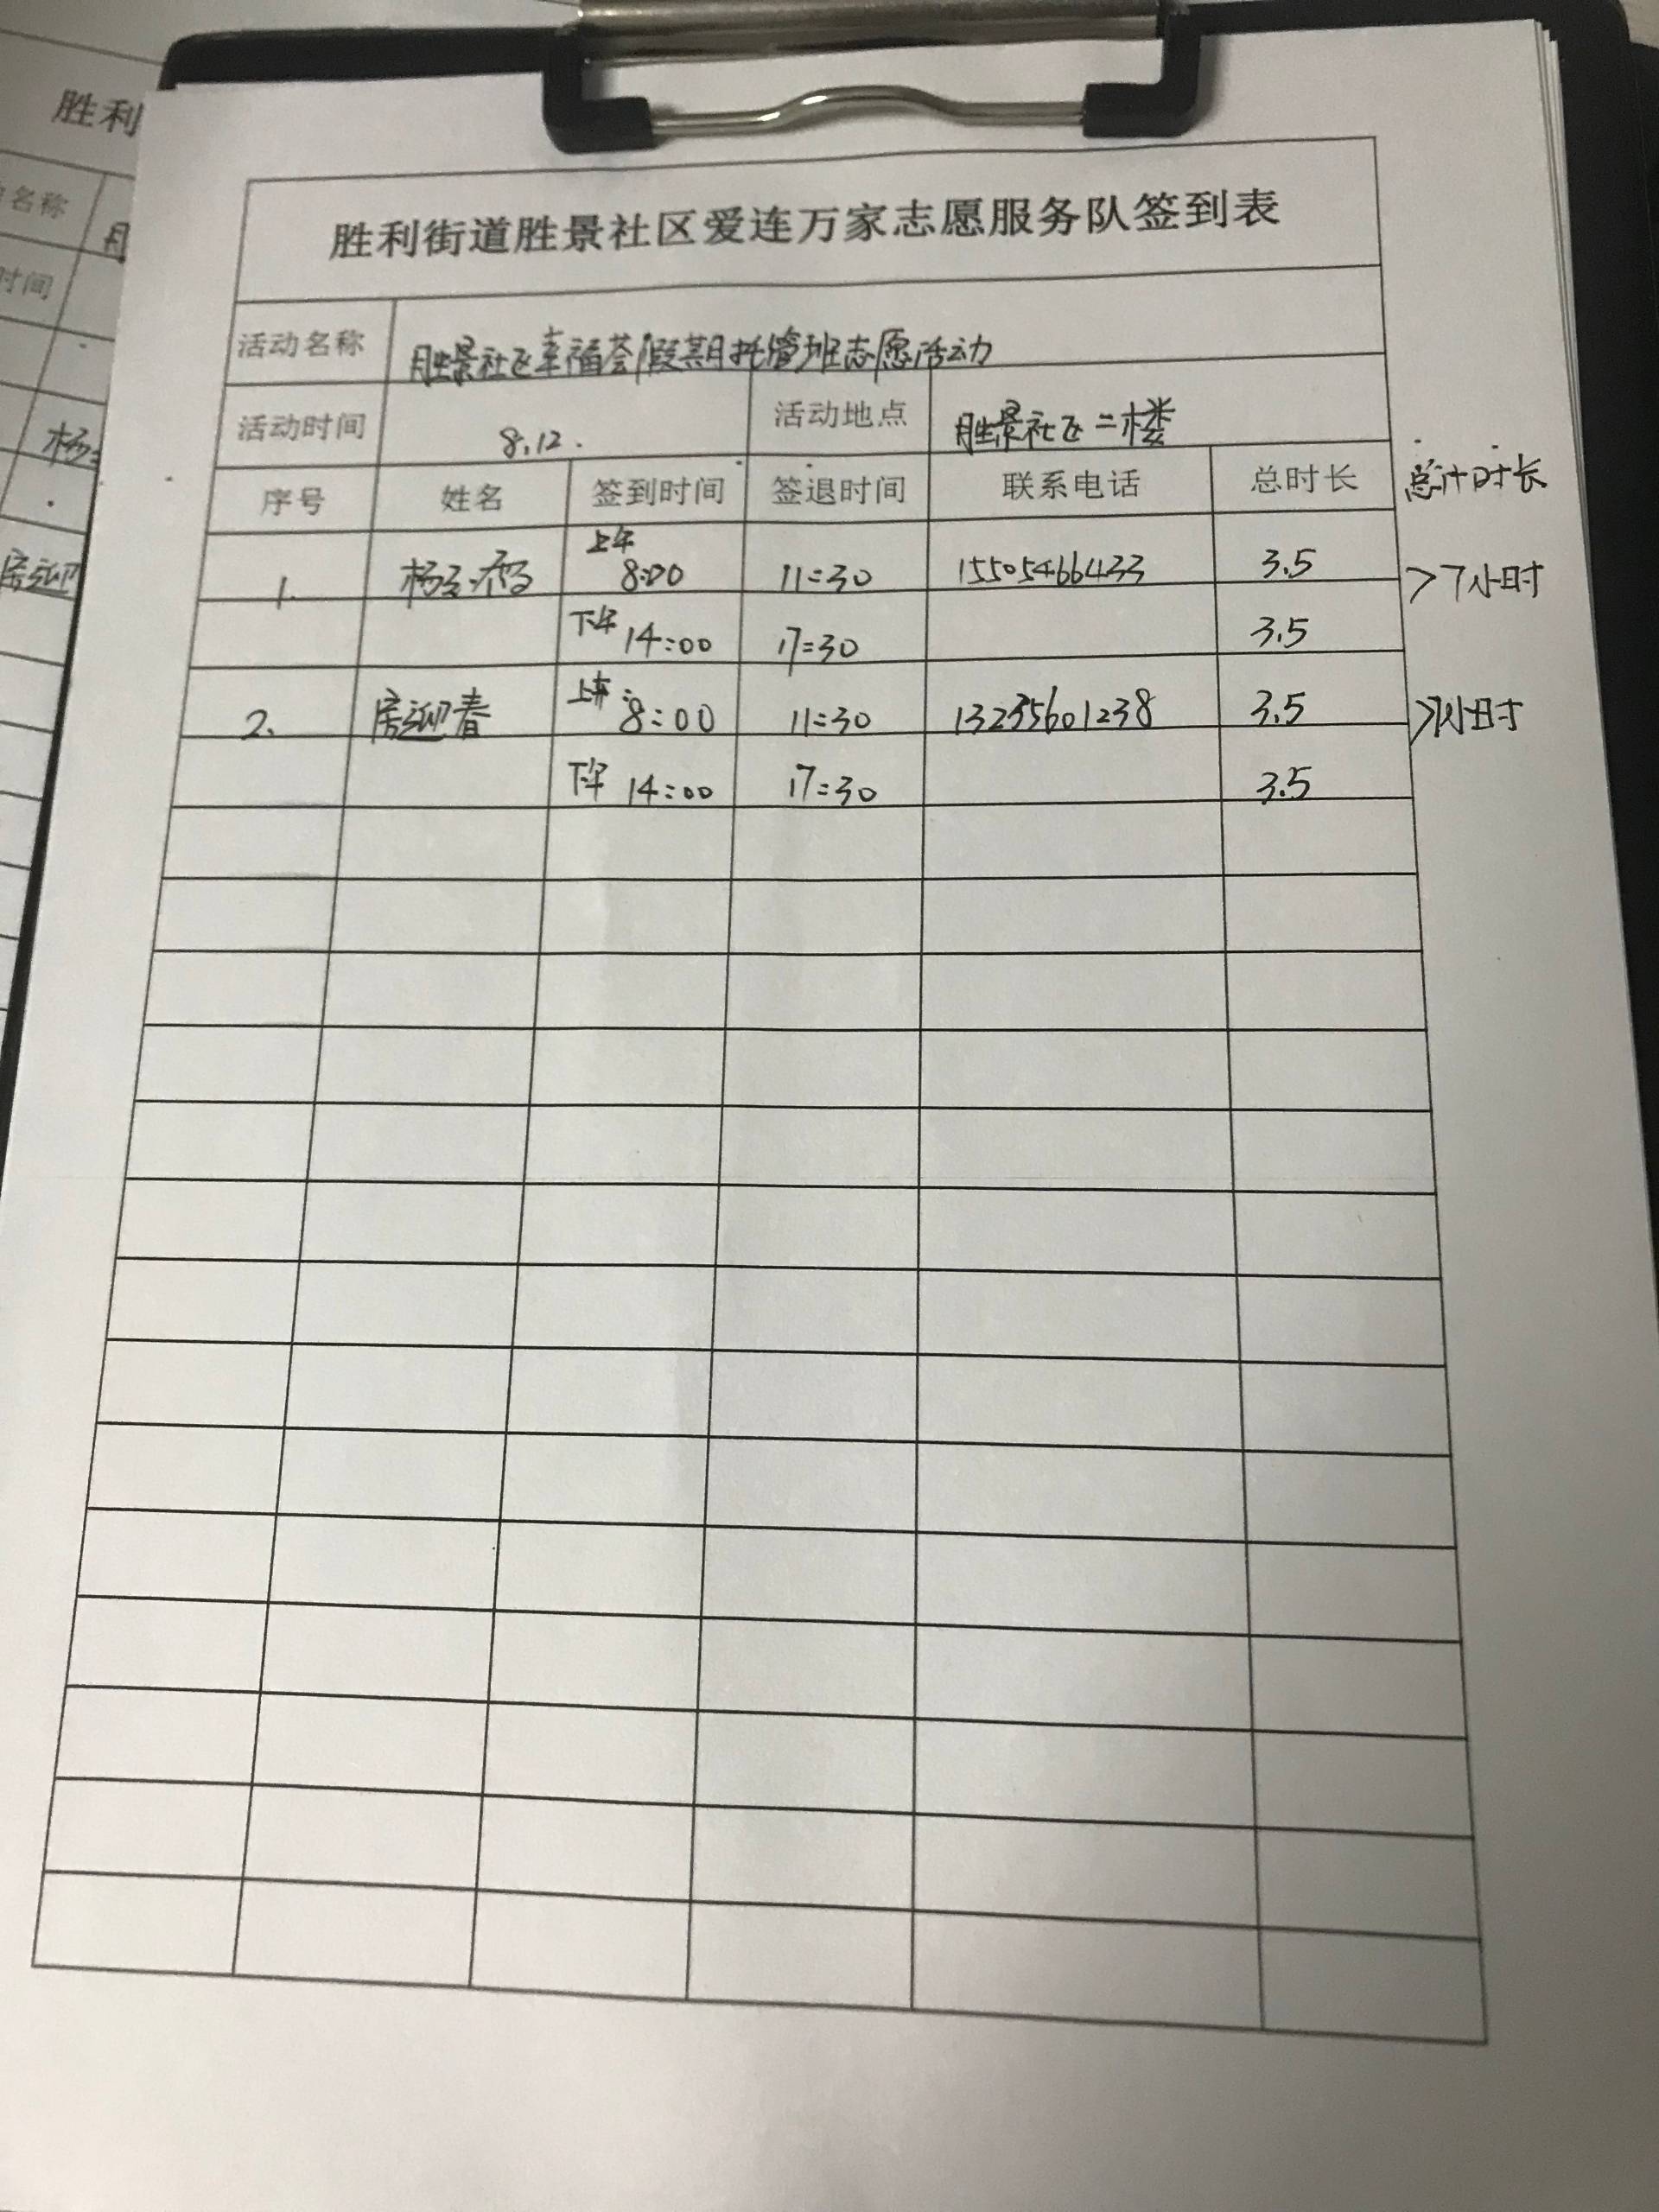 胜利
名称
时间
杨
房迎
胜利街道胜景社区爱连万家志愿服务队签到表
活动名称 胜景社区幸福荟假期托管班志愿活动
活动时间 8.12. 活动地点 胜景社区二楼
序号 姓名 签到时间 签退时间 联系电话 总时长 总计时长
1. 杨 上午 8:00 11:30 15505466433 3.5 >7小时
下午 14:00 17:30 3.5
2. 房迎春 上午:8:00 11:30 13235601238 3.5 >7小时
下午 14:00 17:30 3.5